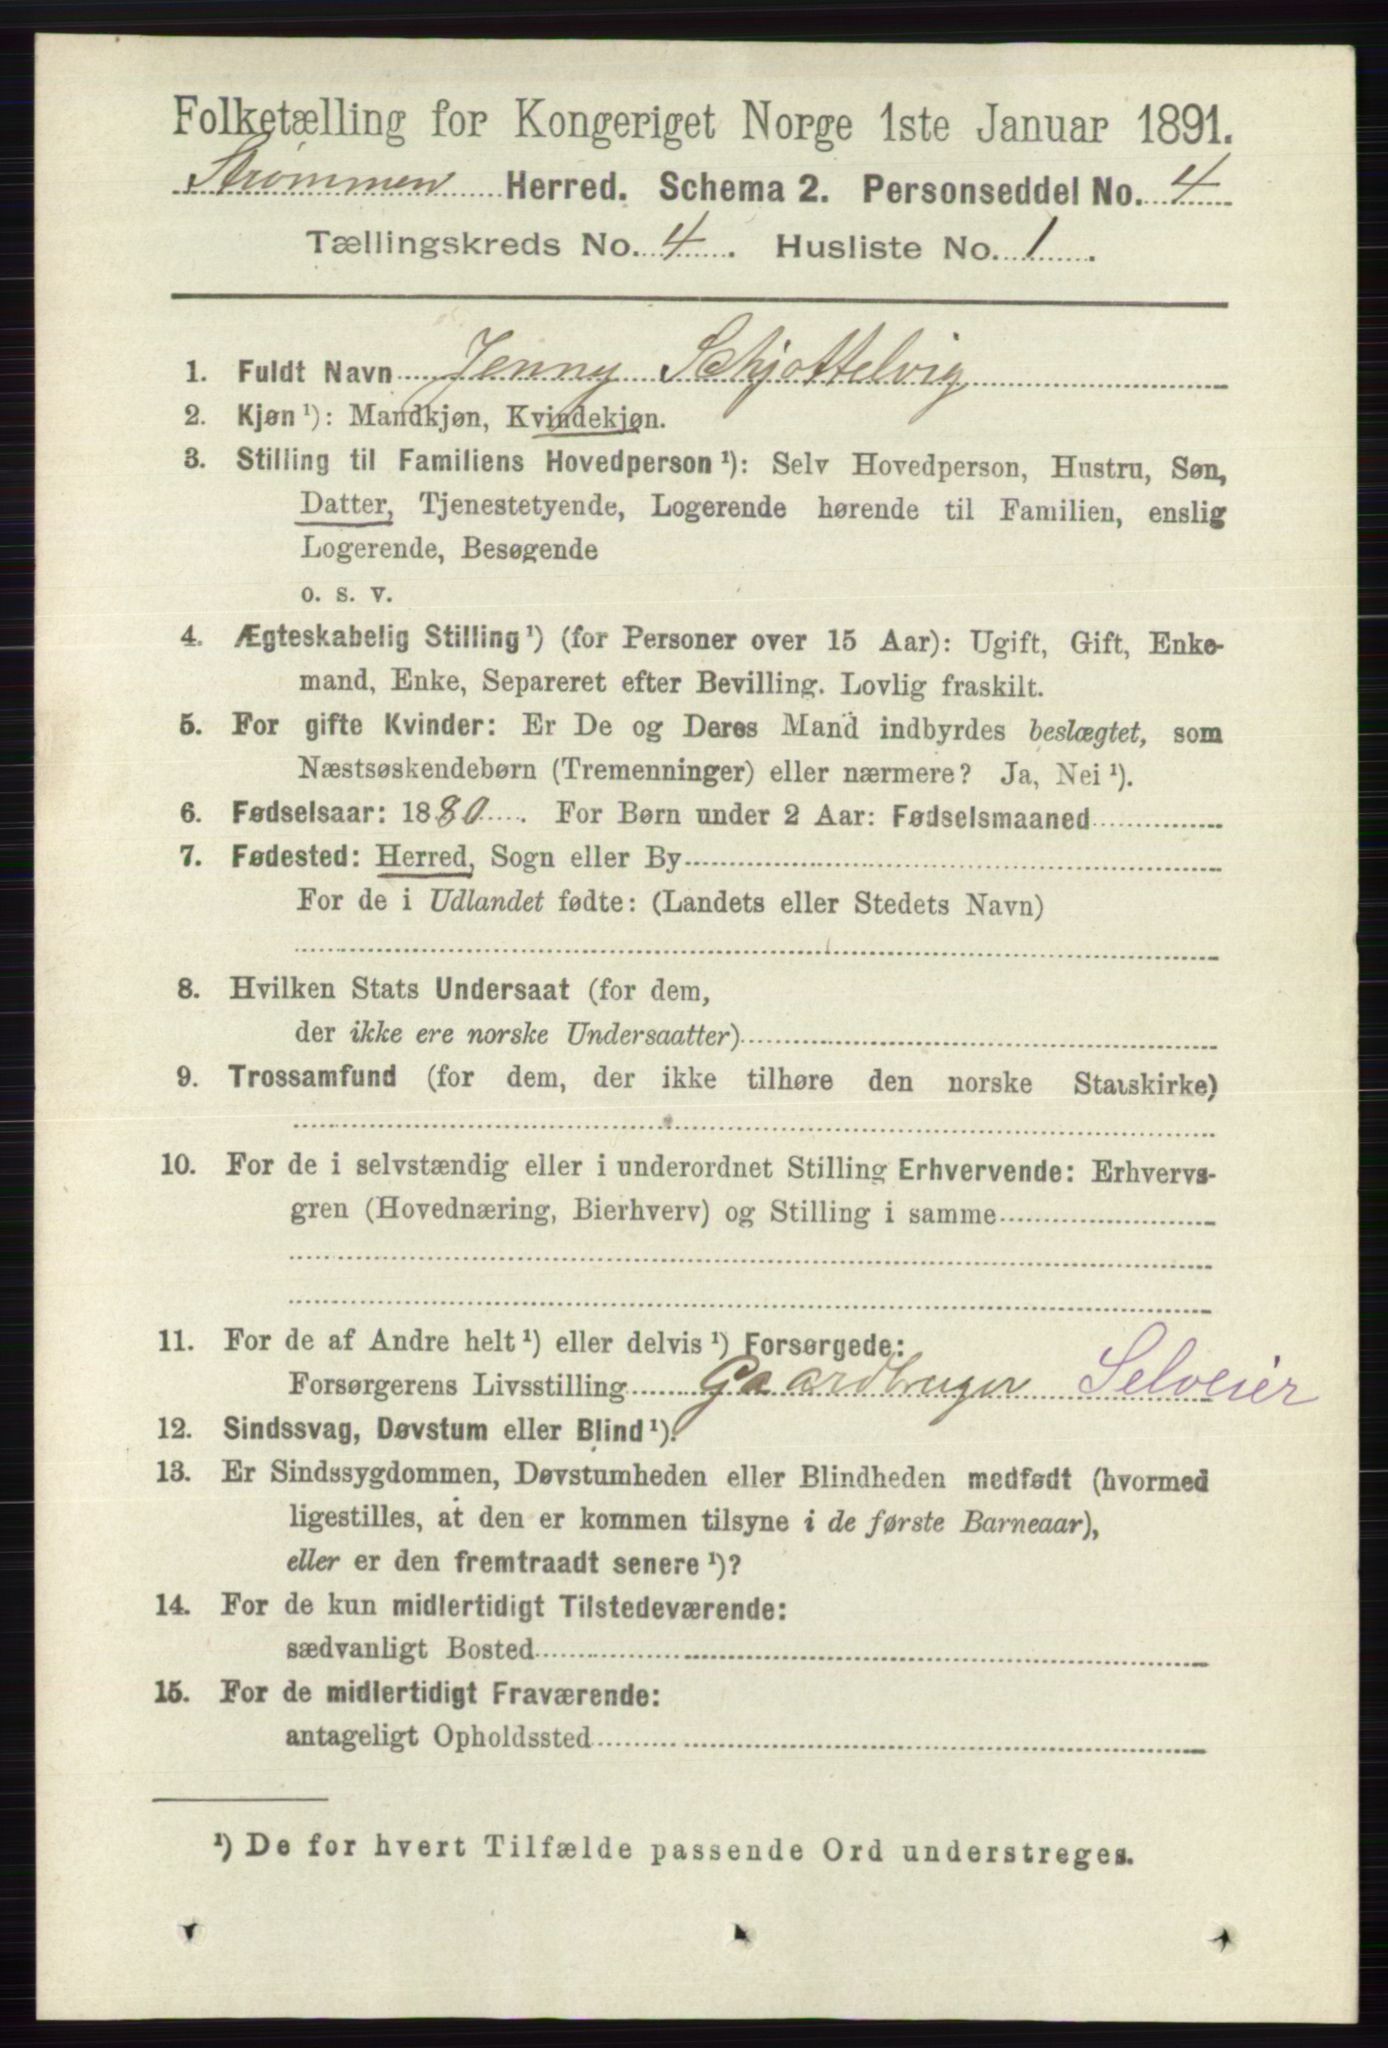 Folketælling for Kongeriget Norge 1ste Januar 1891.
Strømmen Herred. Schema 2. Personseddel No. 4
Tællingskreds No. 4. Husliste No. 1.
1. Fuldt Navn Jenny Schjottelvig
2. Kjøn¹): Mandkjøn, Kvindekjøn.
3. Stilling til Familiens Hovedperson¹): Selv Hovedperson, Hustru, Søn,
Datter, Tjenestetyende, Logerende hørende til Familien, enslig
Logerende, Besøgende
o. s. v.
4. Ægteskabelig Stilling¹) (for Personer over 15 Aar): Ugift, Gift, Enke-
mand, Enke, Separeret efter Bevilling. Lovlig fraskilt.
5. For gifte Kvinder: Er De og Deres Mand indbyrdes beslægtet, som
Næstsøskendebørn (Tremenninger) eller nærmere? Ja, Nei¹).
6. Fødselsaar: 1880. For Børn under 2 Aar: Fødselsmaaned
7. Fødested: Herred, Sogn eller By
For de i Udlandet fødte: (Landets eller Stedets Navn)
8. Hvilken Stats Undersaat (for dem,
der ikke ere norske Undersaatter)
9. Trossamfund (for dem, der ikke tilhøre den norske Statskirke)
10. For de i selvstændig eller i underordnet Stilling Erhvervende: Erhvervs-
gren (Hovednæring, Bierhverv) og Stilling i samme
11. For de af Andre helt¹) eller delvis¹) Forsørgede:
Forsørgerens Livsstilling Gaardbruger Selveier
12. Sindssvag, Døvstum eller Blind¹).
13. Er Sindssygdommen, Døvstumheden eller Blindheden medfødt (hvormed
ligestilles, at den er kommen tilsyne i de første Barneaar),
eller er den fremtraadt senere¹)?
14. For de kun midlertidigt Tilstedeværende:
sædvanligt Bosted
15. For de midlertidigt Fraværende:
antageligt Opholdssted
¹) De for hvert Tilfælde passende Ord understreges.